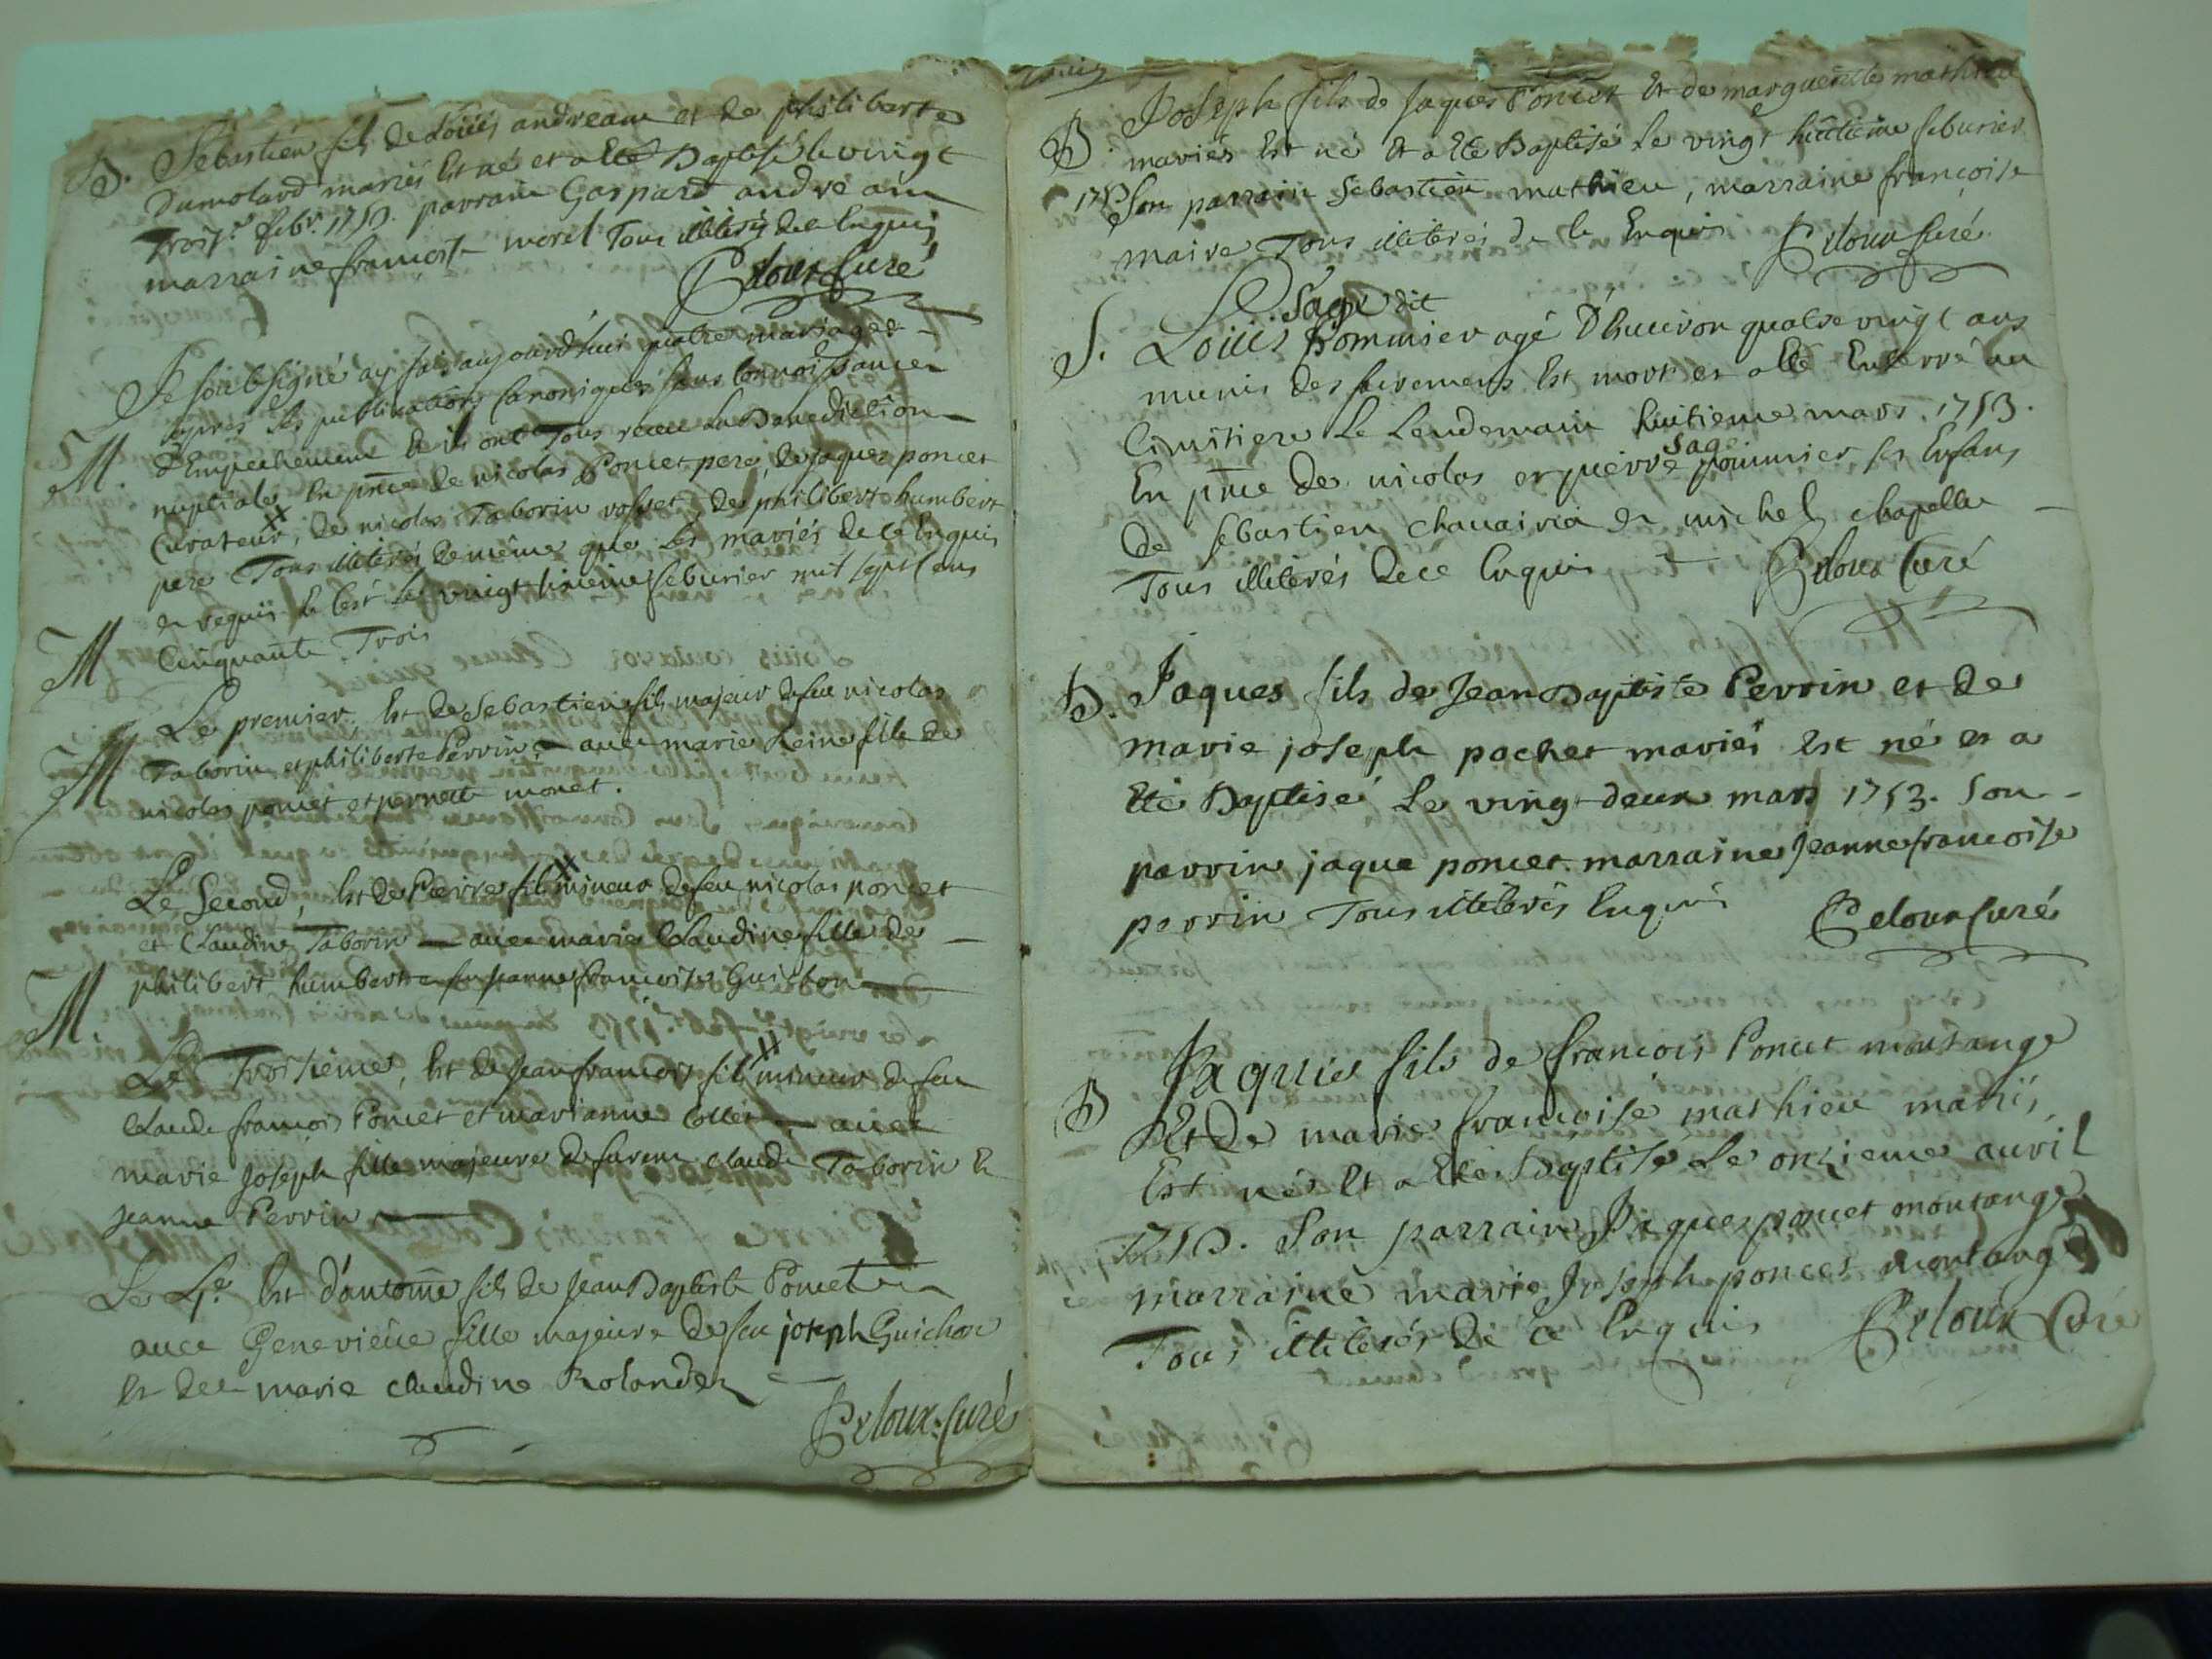 B. Sebastien fils de Loüis andreann et de philiberte
Dumolard mariés Est né et a Eté Baptisé le vingt
Trois.e febr. 1753. parrain Gaspard andreann
marraine francoise morel Tous illiterés de ce Enquis
Peloux Curé
Je soubsigné ay fait aujourd'hui quatre mariages
apres les publications Canoniques sans Connoissance
M. d'Empechement et ils ont Tous receu La Benediction
nuptiale En pñce de nicolas Poncet pere, de jaques poncet
Curateur, de nicolas Taborin, de philibert humbert
pere Tous illiterés de même que les mariés de ce Enquis
et requis le Vingt sixieme feburier mil sept Cens
M Cinquante Trois
Le premier Est de Sebastien fils majeur de feu nicolas
M Taborin et philiberte Perrin avec marie Reine fille de
nicolas poncet et pernette monet.
Le Second, Est de Pierre fils mineur de feu nicolas poncet
et Claudine Taborin avec marie Claudine fille de
philibert humbert et jeanne francoise Guichon
M.
Le Troisieme, Est de Jean francois fils mineur de feu
Claude francois Poncet et marianne Collet avec
marie Joseph fille majeure de furent claude Taborin Et
jeanne Perrin
Le 4.e Est d'antoine fils de Jean Baptiste Poncet
avec Genevieve fille majeure de feu joseph Guichon
Et de marie claudine Rolandez
Peloux Curé
Joseph fils de Jaques Poncet Et de margueritte mathieu
B. mariés Est né Et a Eté Baptisé Le vingt huitieme feburier
1753 Son parrain Sebastien mathieu, marraine françoise
maire Tous illiterés de ce Enquis Peloux Curé
Sage dit
S. Loüis Pommier agé D'Environ quatre vingt ans
munis des sacremens Est mort et a Eté Enterré au
Cimitiere Le Lendemain huitieme mars 1753.
Sage
En pñce de nicolas et pierre pommier ses Enfans
de Sebastien chavairia et michel chapelle
Tous illiterés de ce Enquis Peloux Curé
B. Jaques fils de Jean Baptiste Perrin et de
marie joseph pochet mariés Est né et a
Eté Baptisé Le vingt deux mars 1753. Son
parrin jaque poncet marraine jeanne francoise
perrin Tous illiterés Enquis
Peloux Curé
Jaques fils de francois Poncet montange
B Et de marie francoise mathieu mariés
Est né Et a Eté Baptisé Le onzieme avril
1753. Son parrain Jaques poncet montange
marraine marie Joseph poncet montange
Tous illiterés de ce Enquis Peloux Curé